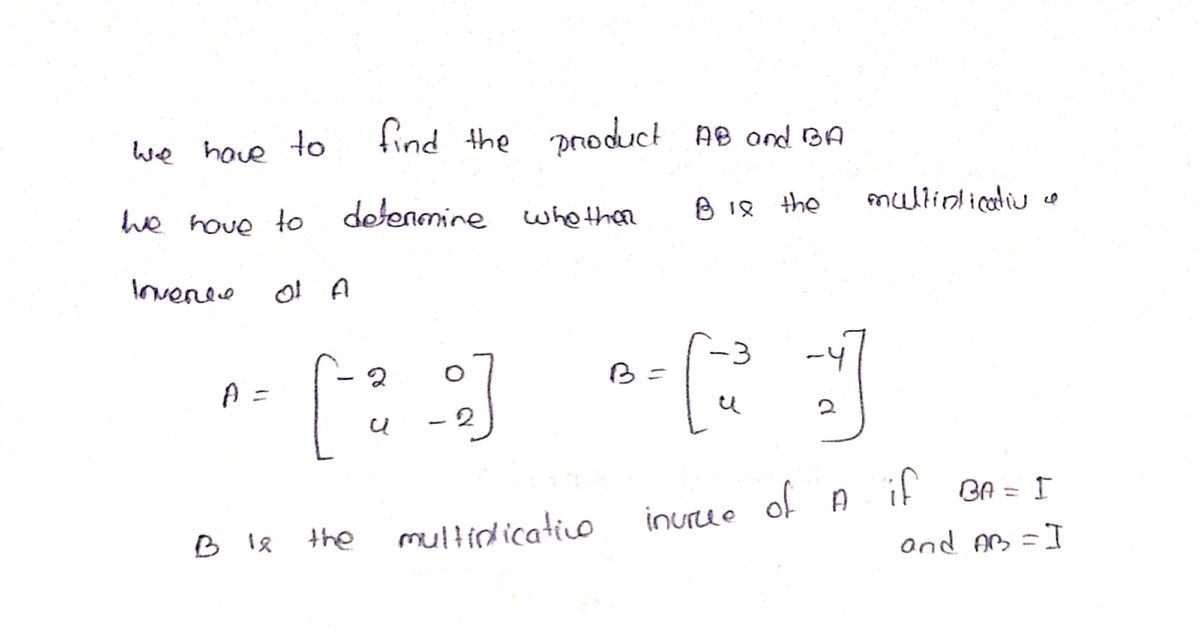 We have to find the product AB and BA
We have to determine whether B is the multiplicative
Inverse of A
A = [ -2 0 ] B = [ -3 -4 ]
[ 4 -2 ] [ 4 2 ]
B is the multiplicative inverse of A if BA = I
and AB = I